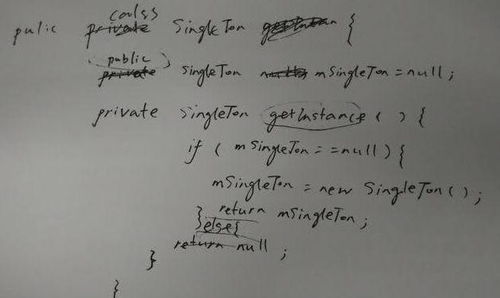 calss
pulic private SingleTon getInstan {
public
private SingleTon mSingleTon = null;
private SingleTon getInstance ( ) {
if ( mSingleTon == null ) {
mSingleTon = new SingleTon ( ) ;
return mSingleTon ;
} else {
return null ;
}
}